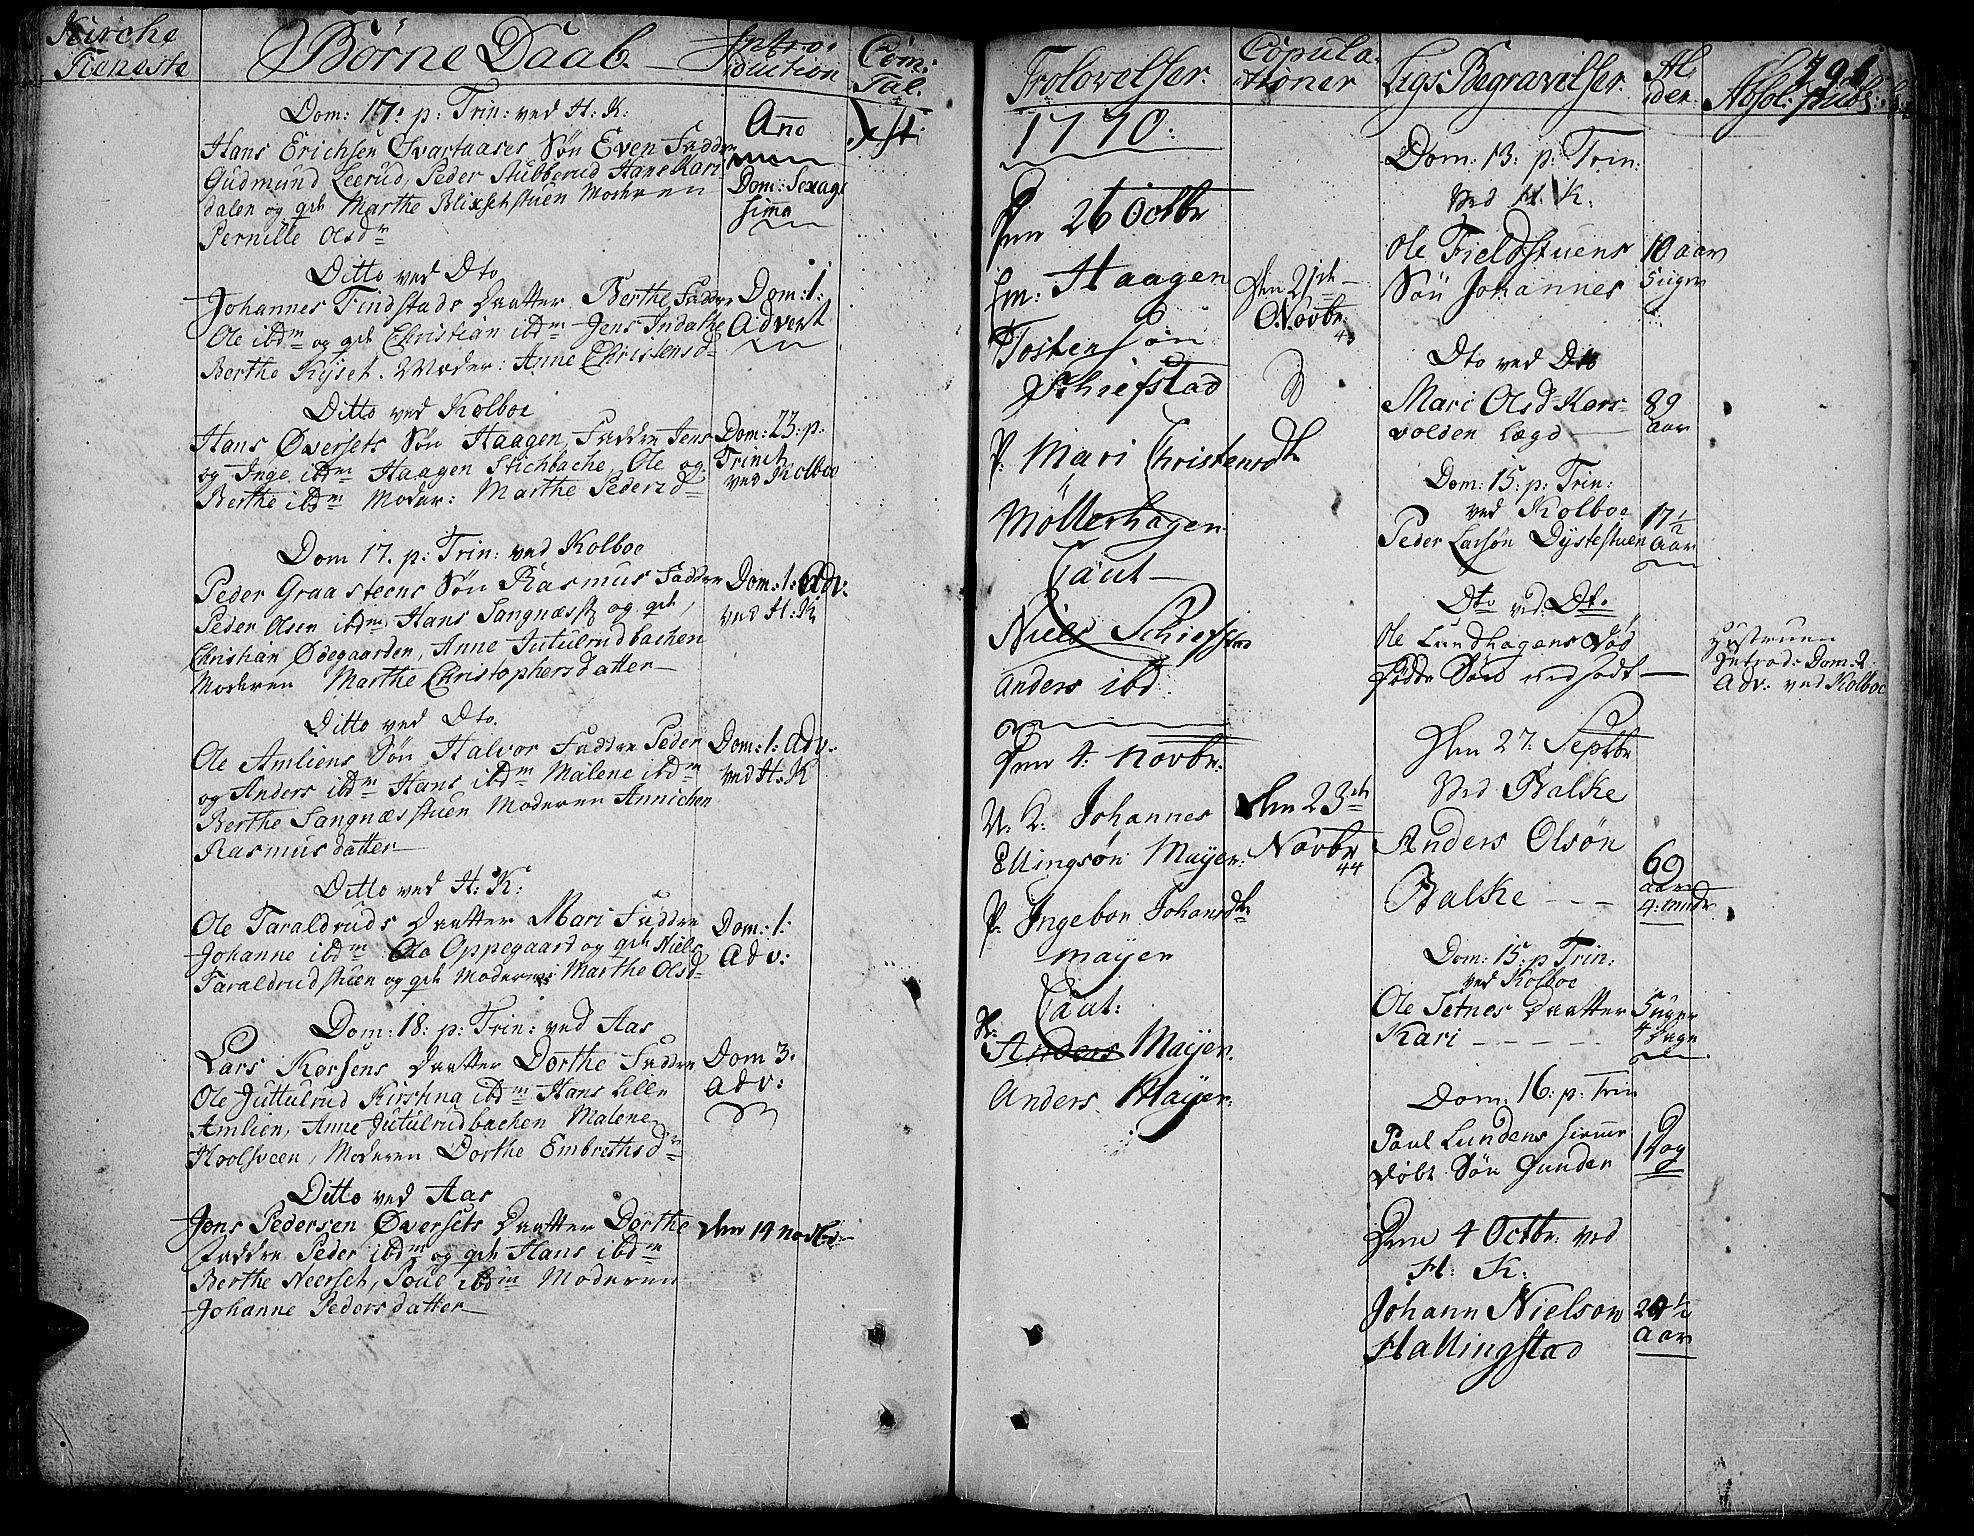 Kirche
Tieneste
Børne Daab.
Intro-
duction
Com:
Tal.
Dom: 17: p: Trin: ved H: K:
Hans Erichsen Svartaases Søn Even Faddre
Gudmund Leerud, Peder Stubberud Hans Kari
dalen og qvt Marthe Blixsetstuen Moderen
Pernille Olsd
Anno
Dom: Sexage
sima
Ditto ved Dto
Johannes Findstads Daatter Berthe Faddre
Ole ibdm og qvt Christian ibdm Jens Indahke
Berthe Kyset. Moder: Anne Christensd
Dom: 1:
Advent
Ditto ved Kolboe
Hans Øversets Søn Haagen, Faddre Jens
og Inge ibdm Haagen Stichbache, Ole og
Berthe ibdm Moder: Marthe Pedersd
Dom: 23: p:
Trinit
ved Kolboe
Dom 17. p: Trin: ved Kolboe
Peder Graasteens Søn Rasmus Faddre
Peder Olsen ibdm Hans Sangnæss og qvt,
Christian Ødegaarden, Anne Jutulrudbachen
Moderen Marthe Christophersdatter
Dom: 1: Adv.
ved H: K
Ditto ved Dto.
Ole Amliens Søn Halvor Faddre Peder
og Anders ibdm Hans ibdm Malene ibdm
Berthe Sangnæsstuen Moderen Annichen
Rasmusdatter
Dom: 1: Adv.
ved H: K
Ditto ved H: K:
Ole Taraldruds Daatter Mari Faddre
Johanne ibdm Ole Oppegaard og qvt Niels
Taraldrudstuen og qvt Moderen Marthe Olsd
Dom: 1:
Adv:
Dom: 18: p: Trin: ved Aas
Lars Korsens Daatter Dorthe Faddre
Ole Juttulrud Kirstina ibdm Hans Lille
Amlien, Anne Jutulrudbachen Malene
Hoolsveen, Moderen Dorthe Embrethsd
Dom 3.
Adv:
Ditto ved Aas
Jens Pedersen Øversets Daatter Dorthe
Faddre Peder ibdm og qvt Hans ibdm
Berthe Neerset, Poul ibdm Moderen
Johanne Pedersdatter
Den 14 Novbr
Trolovelser.
Copula-
tioner
Ligs Begravelser.
Al-
der.
Absol: publ:
1770:
Den 26 Octbr
Em: Haagen
Tostensøn
Schiefstad
P: Mari Christensdtr
Möllerhagen
Caut
Niels Schiefstad
Anders ibd:
Den 21de
Novbr.
43
Den 4: Novbr.
U: K: Johannes
Ellingsøn Mayer:
P: Ingebor Johansdtr
Mayer
Caut:
Anders Mayer.
Anders Mayer:
Den 23de
Novbr
44
Dom: 13: p: Trin:
Ved H. K.
Ole Fieldstuens
Søn Johannes
10 aar
5 uger
Dto ved Dto
Mari Olsd Kors-
volden Lægd
89
aar
Dom: 15: p: Trin:
ved Kolboe
Peder Larsøn Dystestuen
17 1/2
Aar
Dto ved: Dto
Ole Lundhagens Død
fødde Søn nedsadt
Hustruen
Introd: Dom 2
Adv. ved Kolboe
Den 27: Septbr
Ved Balke
Anders Olsøn
Balke
69
aar
4: mndr
Dom: 15: p Trin:
ved Kolboe
Ole Setnes Daatter
Kari
5 uger
4 Dage
Dom: 16: p: Trin
Poul Lundens hieme
døbt Søn Gunder
1 Dag
Den 4 Octbr: ved
H: K:
Johann Nielsøn
Hallingstad
20 1/2
aar